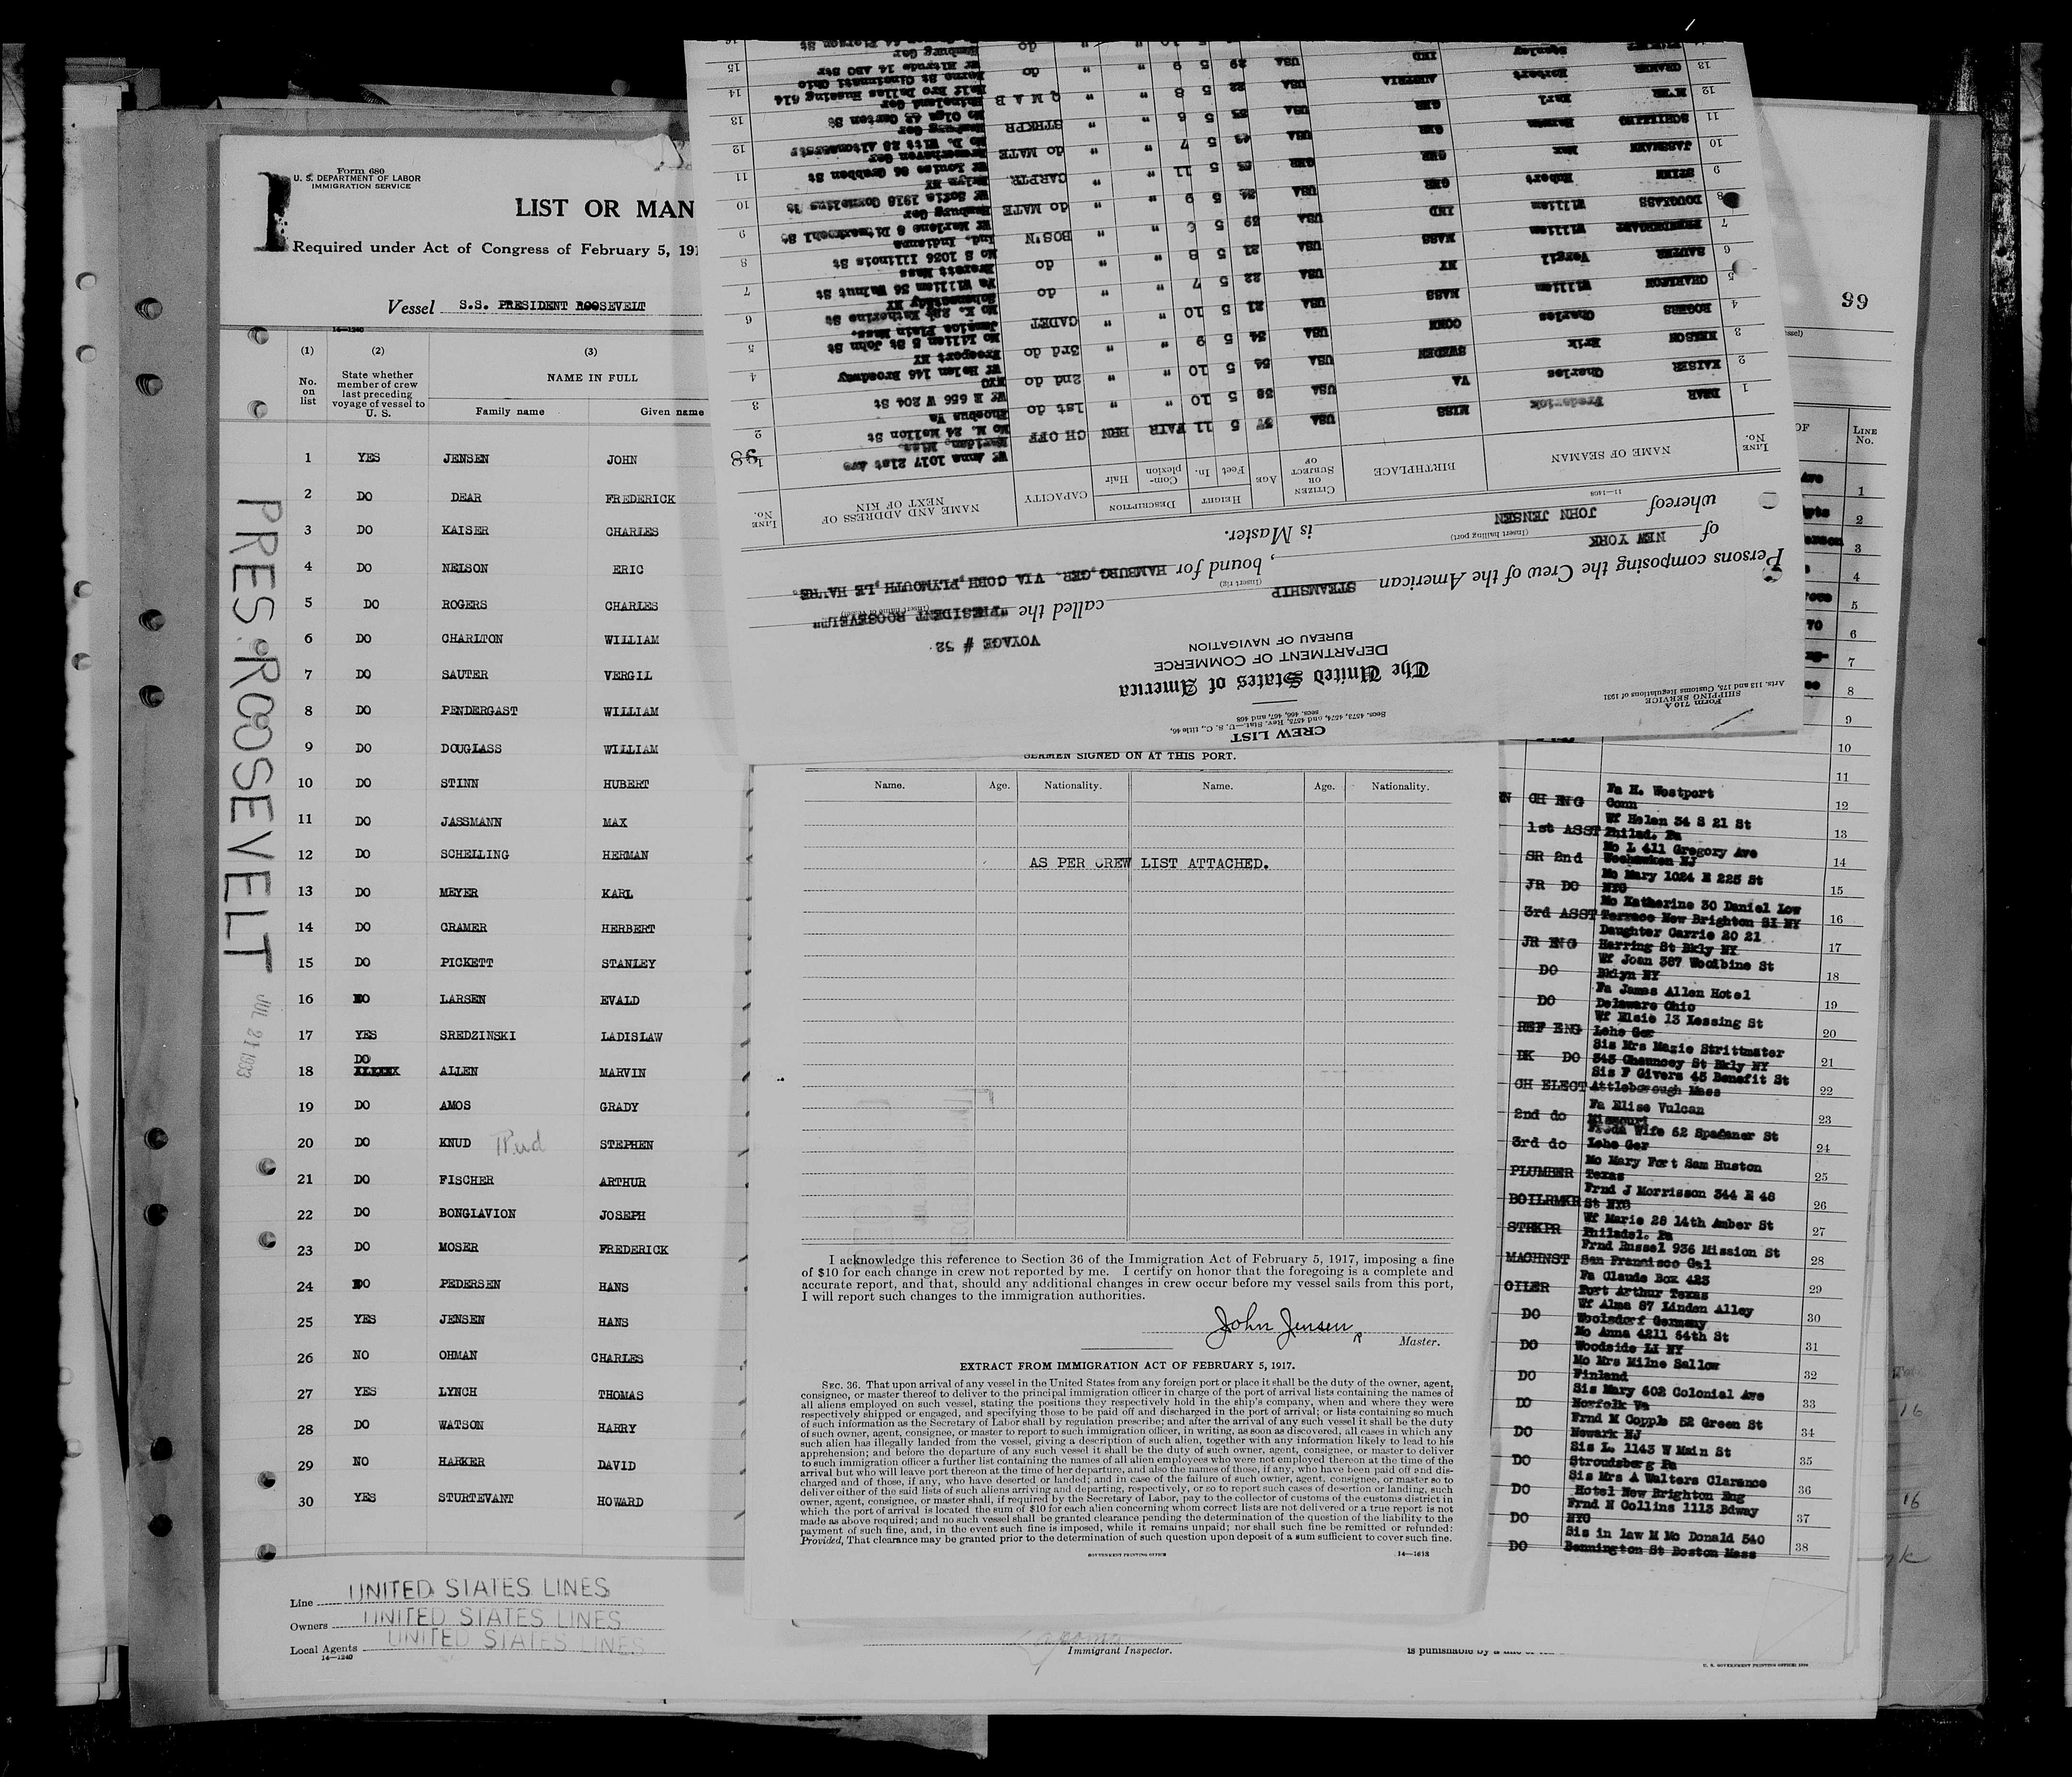 Form 680
U. S. DEPARTMENT OF LABOR
IMMIGRATION SERVICE
LIST OR MAN
Required under Act of Congress of February 5, 191
Vessel S.S. PRESIDENT ROOSEVELT
14—1240
(1) (2) (3)
No. on list State whether member of crew last preceding voyage of vessel to U. S. NAME IN FULL
Family name Given name
1 YES JENSEN JOHN
2 DO DEAR FREDERICK
3 DO KAISER CHARLES
4 DO NELSON ERIC
5 DO ROGERS CHARLES
6 DO CHARLTON WILLIAM
7 DO SAUTER VERGIL
8 DO PENDERGAST WILLIAM
9 DO DOUGLASS WILLIAM
10 DO STINN HUBERT
11 DO JASSMANN MAX
12 DO SCHELLING HERMAN
13 DO MEYER KARL
14 DO CRAMER HERBERT
15 DO PICKETT STANLEY
16 DO LARSEN EVALD
17 YES SREDZINSKI LADISLAW
18 DO ALLEN MARVIN
19 DO AMOS GRADY
20 DO KNUD STEPHEN
21 DO FISCHER ARTHUR
22 DO BONGIAVION JOSEPH
23 DO MOSER FREDERICK
24 DO PEDERSEN HANS
25 YES JENSEN HANS
26 NO OHMAN CHARLES
27 YES LYNCH THOMAS
28 DO WATSON HARRY
29 NO HARKER DAVID
30 YES STURTEVANT HOWARD
PRES. ROOSEVELT JUL 21 1933
Line UNITED STATES LINES
Owners UNITED STATES LINES
Local Agents UNITED STATES LINES
14—1240
Form 710 A
SHIPPING SERVICE
Arts. 113 and 175, Customs Regulations of 1931
CREW LIST
Secs. 4573, 4574, and 4575, Rev. Stat.—U. S. C., title 46,
secs. 466, 467, and 468
The United States of America
DEPARTMENT OF COMMERCE
BUREAU OF NAVIGATION
VOYAGE # 32.
Persons composing the Crew of the American STEAMSHIP called the "PRESIDENT ROOSEVELT"
(Insert rig) (Insert name of vessel)
of NEW YORK, bound for HAMBURG, GER. VIA COBH, PLYMOUTH, LE HAVRE.
(Insert hailing port)
whereof JOHN JENSEN is Master.
11—1408
LINE No. NAME OF SEAMAN BIRTHPLACE CITIZEN OR SUBJECT OF Age HEIGHT Feet In. DESCRIPTION Complexion Hair CAPACITY NAME AND ADDRESS OF NEXT OF KIN LINE No.
1 DEAR Frederick MISS USA 37 5 11 FAIR BRN CH OFF Wf Anna 1017 21st Ave
Meridan, Miss.
98
2 KAISER Charles VA USA 38 5 10 " " 1st do Mo M. 24 Mellon St
Phoebus Va
3 NELSON Erik SWEDEN USA 34 5 10 " " 2nd do Wf E 656 W 204 St
NYC
4 ROGERS Charles CONN USA 34 5 9 " " 3rd do Wf Helen 146 Broadway
Freeport NY
5 CHARLTON William MASS USA 21 5 10 " " CADET Mo Lillian 5 St John St
Jamaica Plain Mass.
6 SAUTER Vergil NY USA 22 5 7 " " do Mo K. Katherine St
Schenectady NY
7 PENDERGAST William MASS USA 21 5 8 " " do Fa William 36 Walnut St
Everett Mass
8 DOUGLASS William IND USA 39 5 " " BOS'N Mo S 1036 Illinois St
Ind. Indianna
9 STINN Hubert GER USA 5 9 " " do MATE
Hamburg Ger
10 JASSMANN Max GER 5 11 " " CARPTR.
Bklyn NY
11 SCHELLING Herman GER USA 5 7 " " do MATE Wf Louise 86 Grabben St
Bremerhaven Ger
12 MEYER Karl GER USA 5 6 " " STRKPR
Hamburg Ger
13 CRAMER Herbert AUSTRIA USA 22 5 8 " " Q M A B Mo Olga 42 Garten St
Rhineland Ger
Stanley IND USA 29 5 9 " " do
Cincinnati Ohio
14
15
Hamburg Ger
99
LINE No.
1
2
3
4
5
6
7
8
9
10
11
12 CH ENG Fa H. Westport
Conn
13 1st ASST Wf Helen 34 S 21 St
Philad. Pa
14 SR 2nd Mo L 411 Gregory Ave
Weehawken NJ
15 JR DO Mo Mary 1024 E 225 St
NYC
16 3rd ASST Mo Katherine 30 Daniel Low
Terrace New Brighton SI NY
17 JR ENG Daughter Carrie 20 21
Harring St Bkly NY
18 DO Wf Joan 387 Woodbine St
Bklyn NY
19 DO Fa James Allen Hotel
Delaware Ohio
20 REF ENG Wf Elsie 13 Lessing St
Lehe Ger
21 DK DO Sis Mrs Mazie Strittmater
343 Chauncey St Bkly NY
22 CH ELECT Sis F Givers 45 Benefit St
Attleborough Mass
23 2nd do Fa Elise Vulcan
Missouri
24 3rd do Freda Wife 62 Spadaner St
Lehe Ger
25 PLUMBER Mo Mary Fort Sam Huston
Texas
26 BOILRMKR Frnd J Morrisson 344 E 48
St NYC
27 STRKPR Wf Marie 28 14th Amber St
Philadel. Pa
28 MACHNST Frnd Russel 936 Mission St
San Francisco Cal
29 OILER Fa Claude Box 423
Port Arthur Texas
30 DO Wf Alma 87 Linden Alley
Woolsdorf Germany
31 DO Mo Anna 4211 64th St
Woodside LI NY
32 DO Mo Mrs Milne Sallow
Finland
33 DO Sis Mary 602 Colonial Ave
Norfolk Va
34 DO Frnd M Copple 52 Green St
Newark NJ
35 DO Sis L. 1143 W Main St
Stroudsberg Pa
36 DO Sis Mrs A Walters Clarance
Hotel New Brighton Eng
37 DO Frnd N Collins 1113 Bdway
NYC
38 DO Sis in law M Mc Donald 540
Bennington St Boston Mass
SEAMEN SIGNED ON AT THIS PORT.
Name. Age. Nationality. Name. Age. Nationality.
AS PER CREW LIST ATTACHED.
I acknowledge this reference to Section 36 of the Immigration Act of February 5, 1917, imposing a fine
of $10 for each change in crew not reported by me. I certify on honor that the foregoing is a complete and
accurate report, and that, should any additional changes in crew occur before my vessel sails from this port,
I will report such changes to the immigration authorities.
John Jensen
Master.
EXTRACT FROM IMMIGRATION ACT OF FEBRUARY 5, 1917.
SEC. 36. That upon arrival of any vessel in the United States from any foreign port or place it shall be the duty of the owner, agent,
consignee, or master thereof to deliver to the principal immigration officer in charge of the port of arrival lists containing the names of
all aliens employed on such vessel, stating the positions they respectively hold in the ship's company, when and where they were
respectively shipped or engaged, and specifying those to be paid off and discharged in the port of arrival; or lists containing so much
of such information as the Secretary of Labor shall by regulation prescribe; and after the arrival of any such vessel it shall be the duty
of such owner, agent, consignee, or master to report to such immigration officer, in writing, as soon as discovered, all cases in which any
such alien has illegally landed from the vessel, giving a description of such alien, together with any information likely to lead to his
apprehension; and before the departure of any such vessel it shall be the duty of such owner, agent, consignee, or master to deliver
to such immigration officer a further list containing the names of all alien employees who were not employed thereon at the time of the
arrival but who will leave port thereon at the time of her departure, and also the names of those, if any, who have been paid off and dis-
charged and of those, if any, who have deserted or landed; and in case of the failure of such owner, agent, consignee, or master so to
deliver either of the said lists of such aliens arriving and departing, respectively, or so to report such cases of desertion or landing, such
owner, agent, consignee, or master shall, if required by the Secretary of Labor, pay to the collector of customs of the customs district in
which the port of arrival is located the sum of $10 for each alien concerning whom correct lists are not delivered or a true report is not
made as above required; and no such vessel shall be granted clearance pending the determination of the question of the liability to the
payment of such fine, and, in the event such fine is imposed, while it remains unpaid; nor shall such fine be remitted or refunded:
Provided, That clearance may be granted prior to the determination of such question upon deposit of a sum sufficient to cover such fine.
GOVERNMENT PRINTING OFFICE 14—1618
Immigrant Inspector.
is punishable by a
U. S. GOVERNMENT PRINTING OFFICE